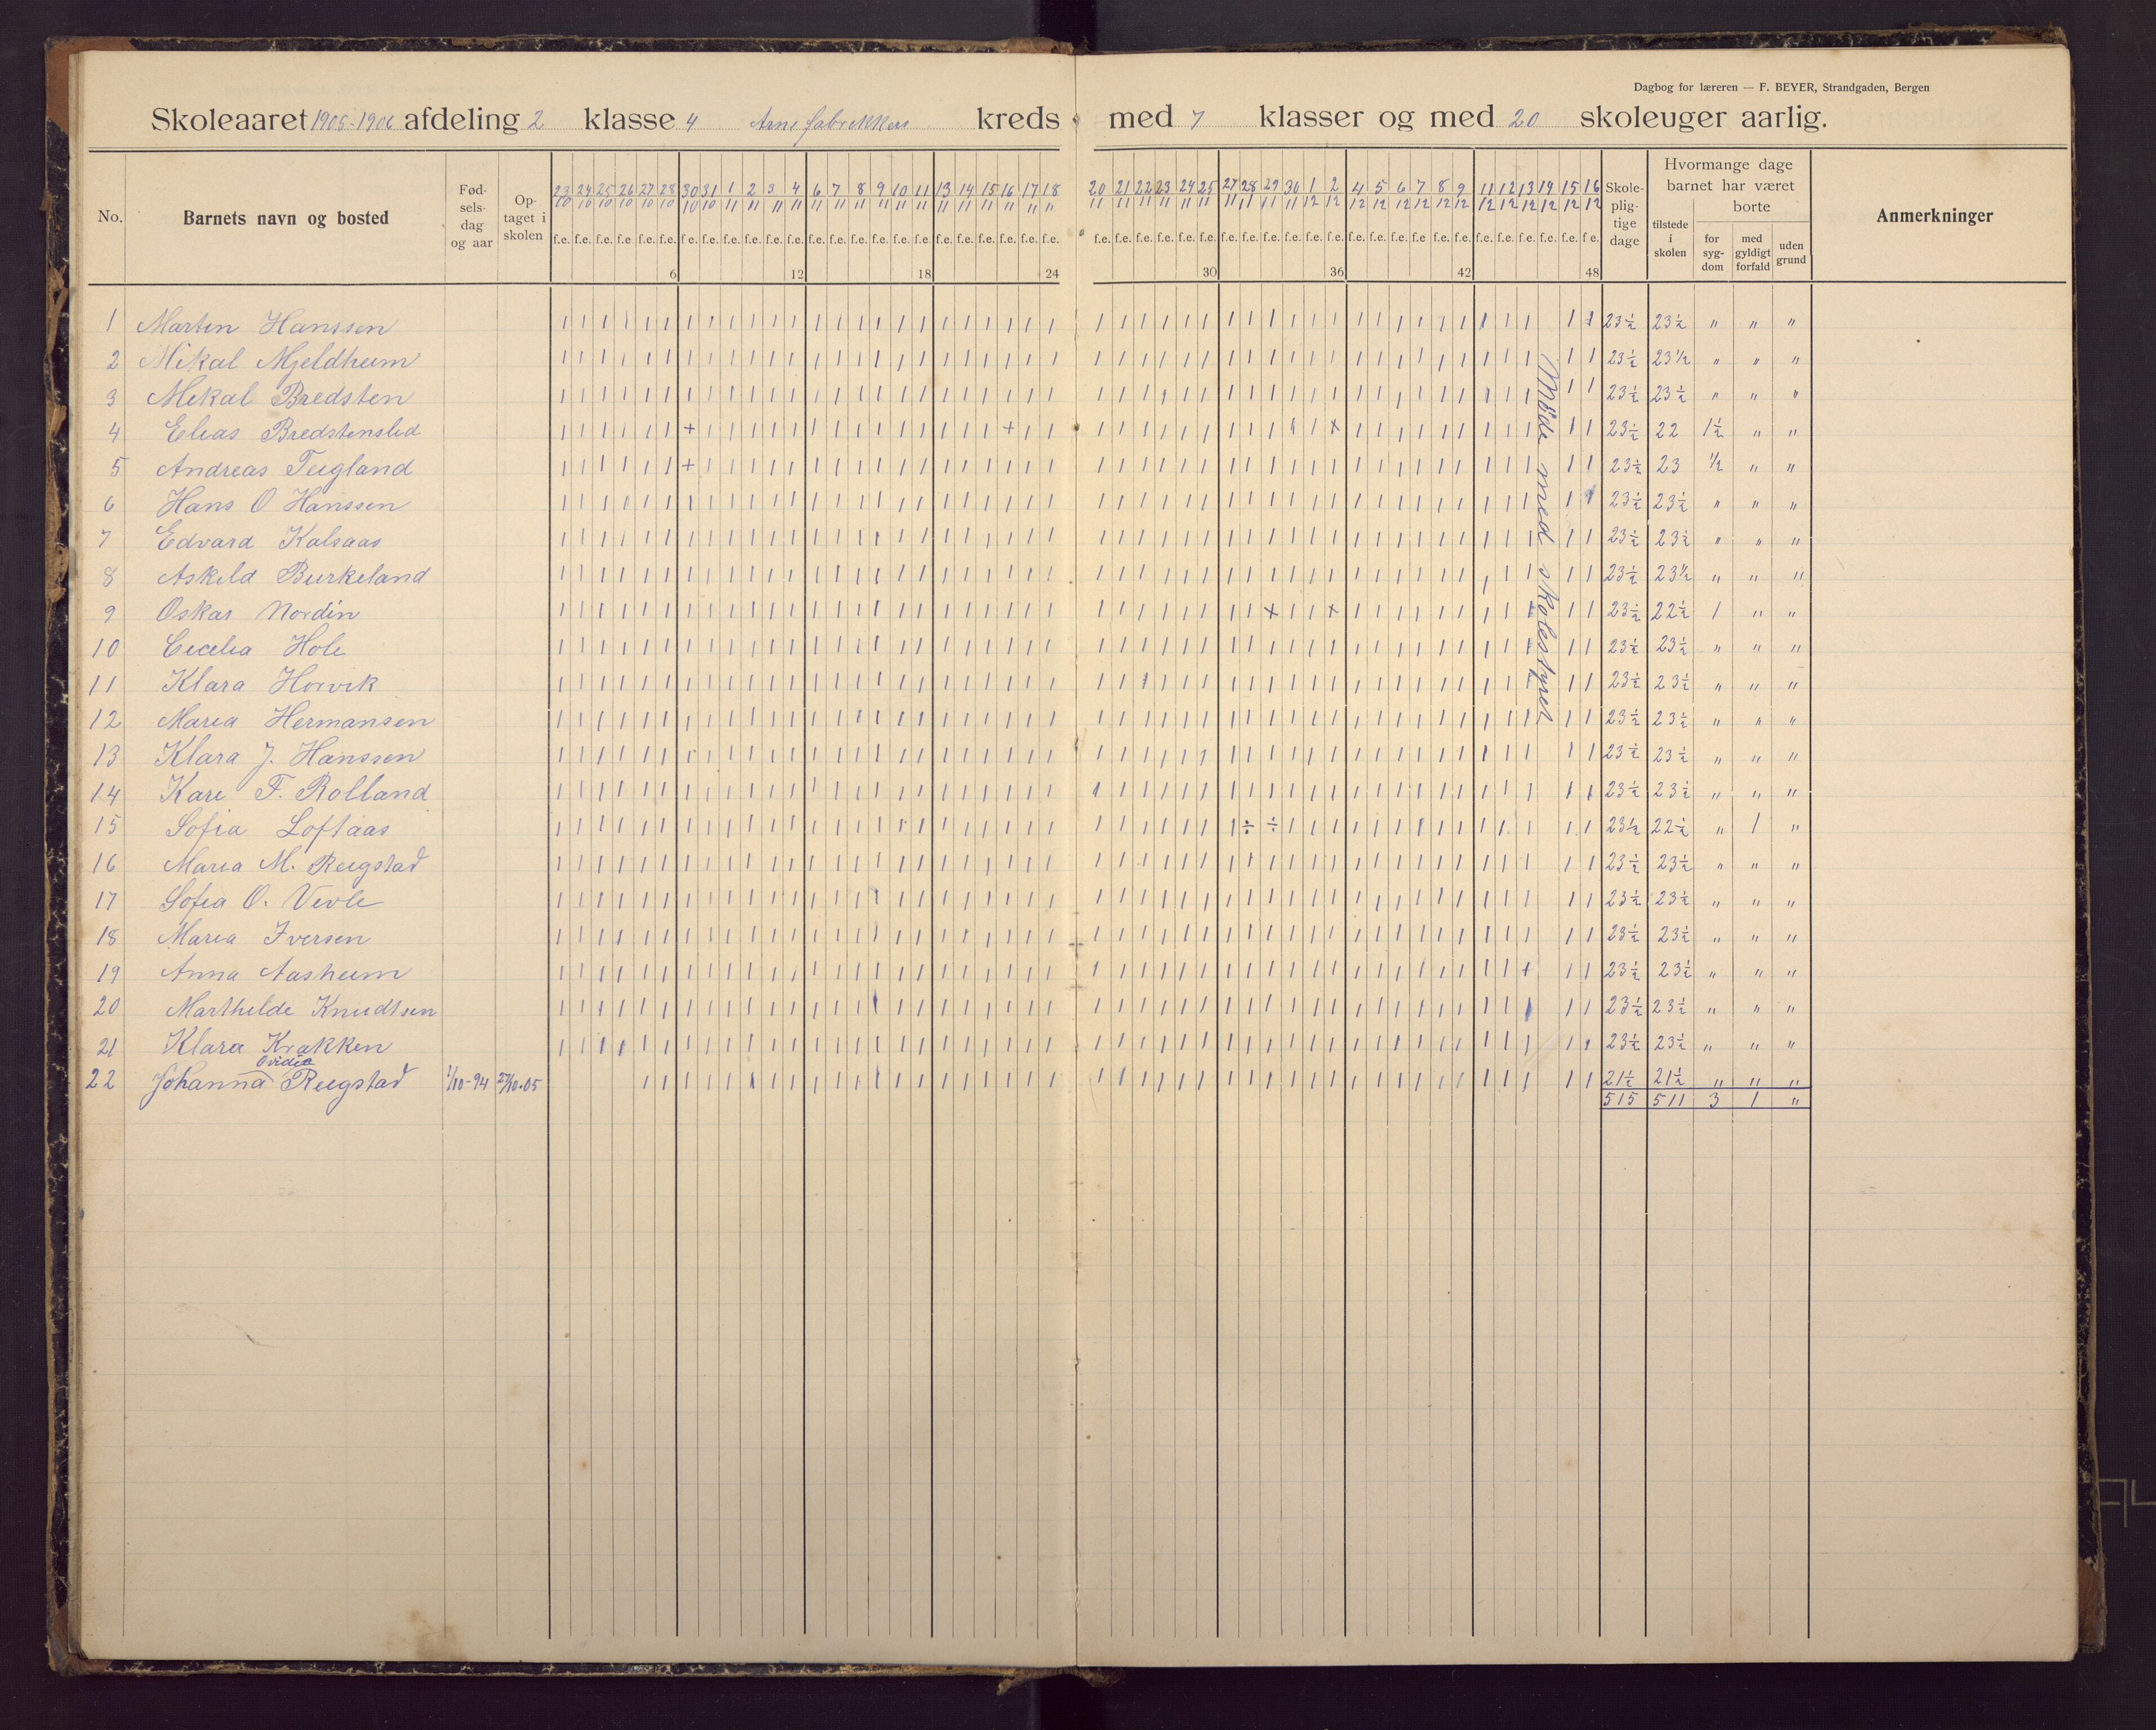 Dagbog for læreren — F. BEYER, Strandgaden, Bergen
Skoleaaret 1905-1906 afdeling 2 klasse 4 Arne fabrikkers kreds med 7 klasser og med 20 skoleuger aarlig.
No. Barnets navn og bosted Fødselsdag og aar Optaget i skolen
23/10 24/10 25/10 26/10 27/10 28/10 30/10 31/10 1/11 2/11 3/11 4/11 6/11 7/11 8/11 9/11 10/11 11/11 13/11 14/11 15/11 16/11 17/11 18/11 20/11 21/11 22/11 23/11 24/11 25/11 27/11 28/11 29/11 30/11 1/12 2/12 4/12 5/12 6/12 7/12 8/12 9/12 11/12 12/12 13/12 14/12 15/12 16/12
f.e. f.e. f.e. f.e. f.e. f.e. f.e. f.e. f.e. f.e. f.e. f.e. f.e. f.e. f.e. f.e. f.e. f.e. f.e. f.e. f.e. f.e. f.e. f.e. f.e. f.e. f.e. f.e. f.e. f.e. f.e. f.e. f.e. f.e. f.e. f.e. f.e. f.e. f.e. f.e. f.e. f.e. f.e. f.e. f.e. f.e. f.e. f.e.
6 12 18 24 30 36 42 48
Skolepligtige dage
Hvormange dage barnet har været
tilstede i skolen
borte
for sygdom
med gyldigt forfald
uden grund
Anmerkninger
1 Martin Hanssen 23½ 23½ " " "
2 Mikal Mjeldheim 23½ 23½ " " "
3 Mikal Bredsten 23½ 23½ " " "
4 Elias Bredstenslid 23½ 22 1½ " "
5 Andreas Teigland 23½ 23 ½ " "
6 Hans O Hanssen 23½ 23½ " " "
7 Edvard Kalsaas 23½ 23½ " " "
8 Askild Birkeland 23½ 23½ " " "
9 Oskar Nordin 23½ 22½ 1 " "
10 Cecilia Hole 23½ 23½ " " "
11 Klara Horvik 23½ 23½ " " "
12 Maria Hermansen 23½ 23½ " " "
13 Klara J. Hanssen 23½ 23½ " " "
14 Kari F. Rolland 23½ 23½ " " "
15 Sofia Loftaas 23½ 22½ " 1 "
16 Maria M. Reigstad 23½ 23½ " " "
17 Sofia O. Vevle 23½ 23½ " " "
18 Maria Iversen 23½ 23½ " " "
19 Anna Aasheim 23½ 23½ " " "
20 Marthilde Knudtsen 23½ 23½ " " "
21 Klara Krakken 23½ 23½ " " "
Ovidia
22 Johanna Reigstad 1/10-94 27/10-05 21½ 21½ " " "
515 511 3 1 "
Møde med skolestyret